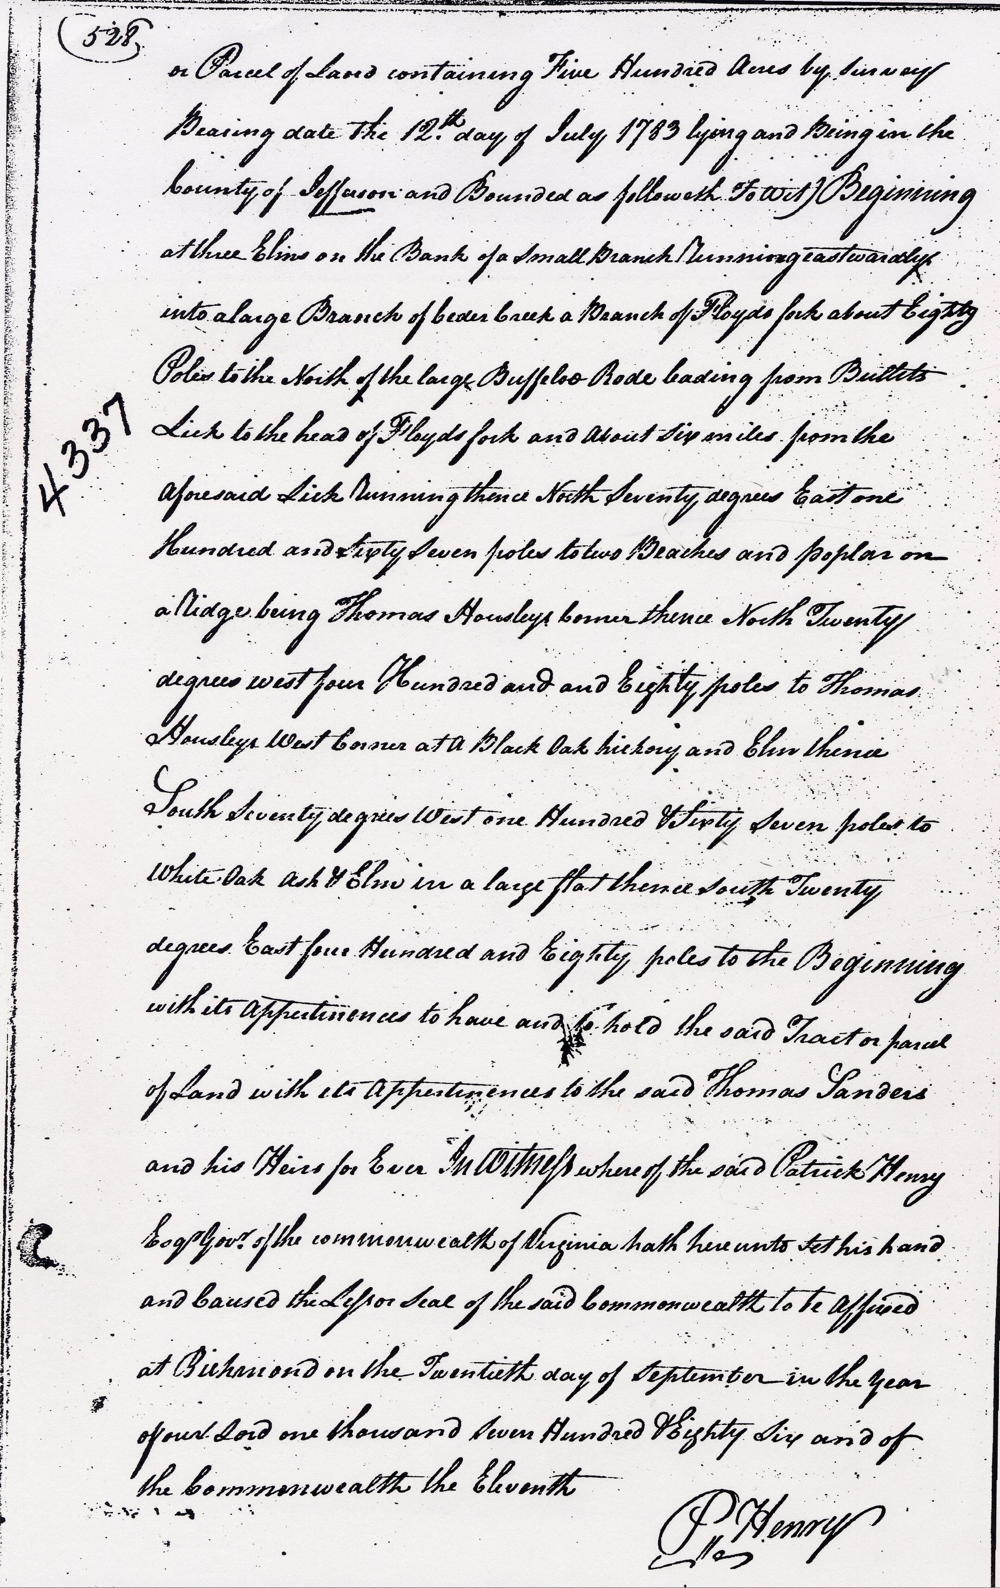 528
or Parcel of Land containing Five Hundred Acres by Survey
Bearing date the 12th day of July 1783 lying and Being in the
County of Jefferson and Bounded as followeth Towit) Beginning
at three Elms on the Bank of a Small Branch Running eastwardly
into a large Branch of Ceder Creek a Branch of Floyds fork about Eighty
Poles to the North of the large Buffeloe Rode leading from Bullits
Lick to the head of Floyds fork and About Six miles from the
4337
Aforesaid Lick Running thence North Seventy degrees East one
Hundred and Sixty Seven poles to two Beaches and poplar on
a Ridge being Thomas Housleys Corner thence North Twenty
degrees west four Hundred and and Eighty poles to Thomas
Housleys West Corner at A Black Oak hickory and Elm thence
South Seventy degrees West one Hundred & Sixty Seven poles to
White Oak Ash & Elm in a large flat thence South Twenty
degrees East four Hundred and Eighty poles to the Beginning
with its Appertinences to have and to hold the said Tract or parcel
of Land with its Appertinences to the said Thomas Sanders
and his Heirs for Ever In Witness whereof the said Patrick Henry
Esqr Govr. of the commonwealth of Virginia hath hereunto Set his hand
and Caused the Lessor Seal of the said Commonwealth to be Affixed
at Richmond on the Twentieth day of September in the Year
of our Lord one thousand Seven Hundred & Eighty Six and of
the Commonwealth the Eleventh
P. Henry